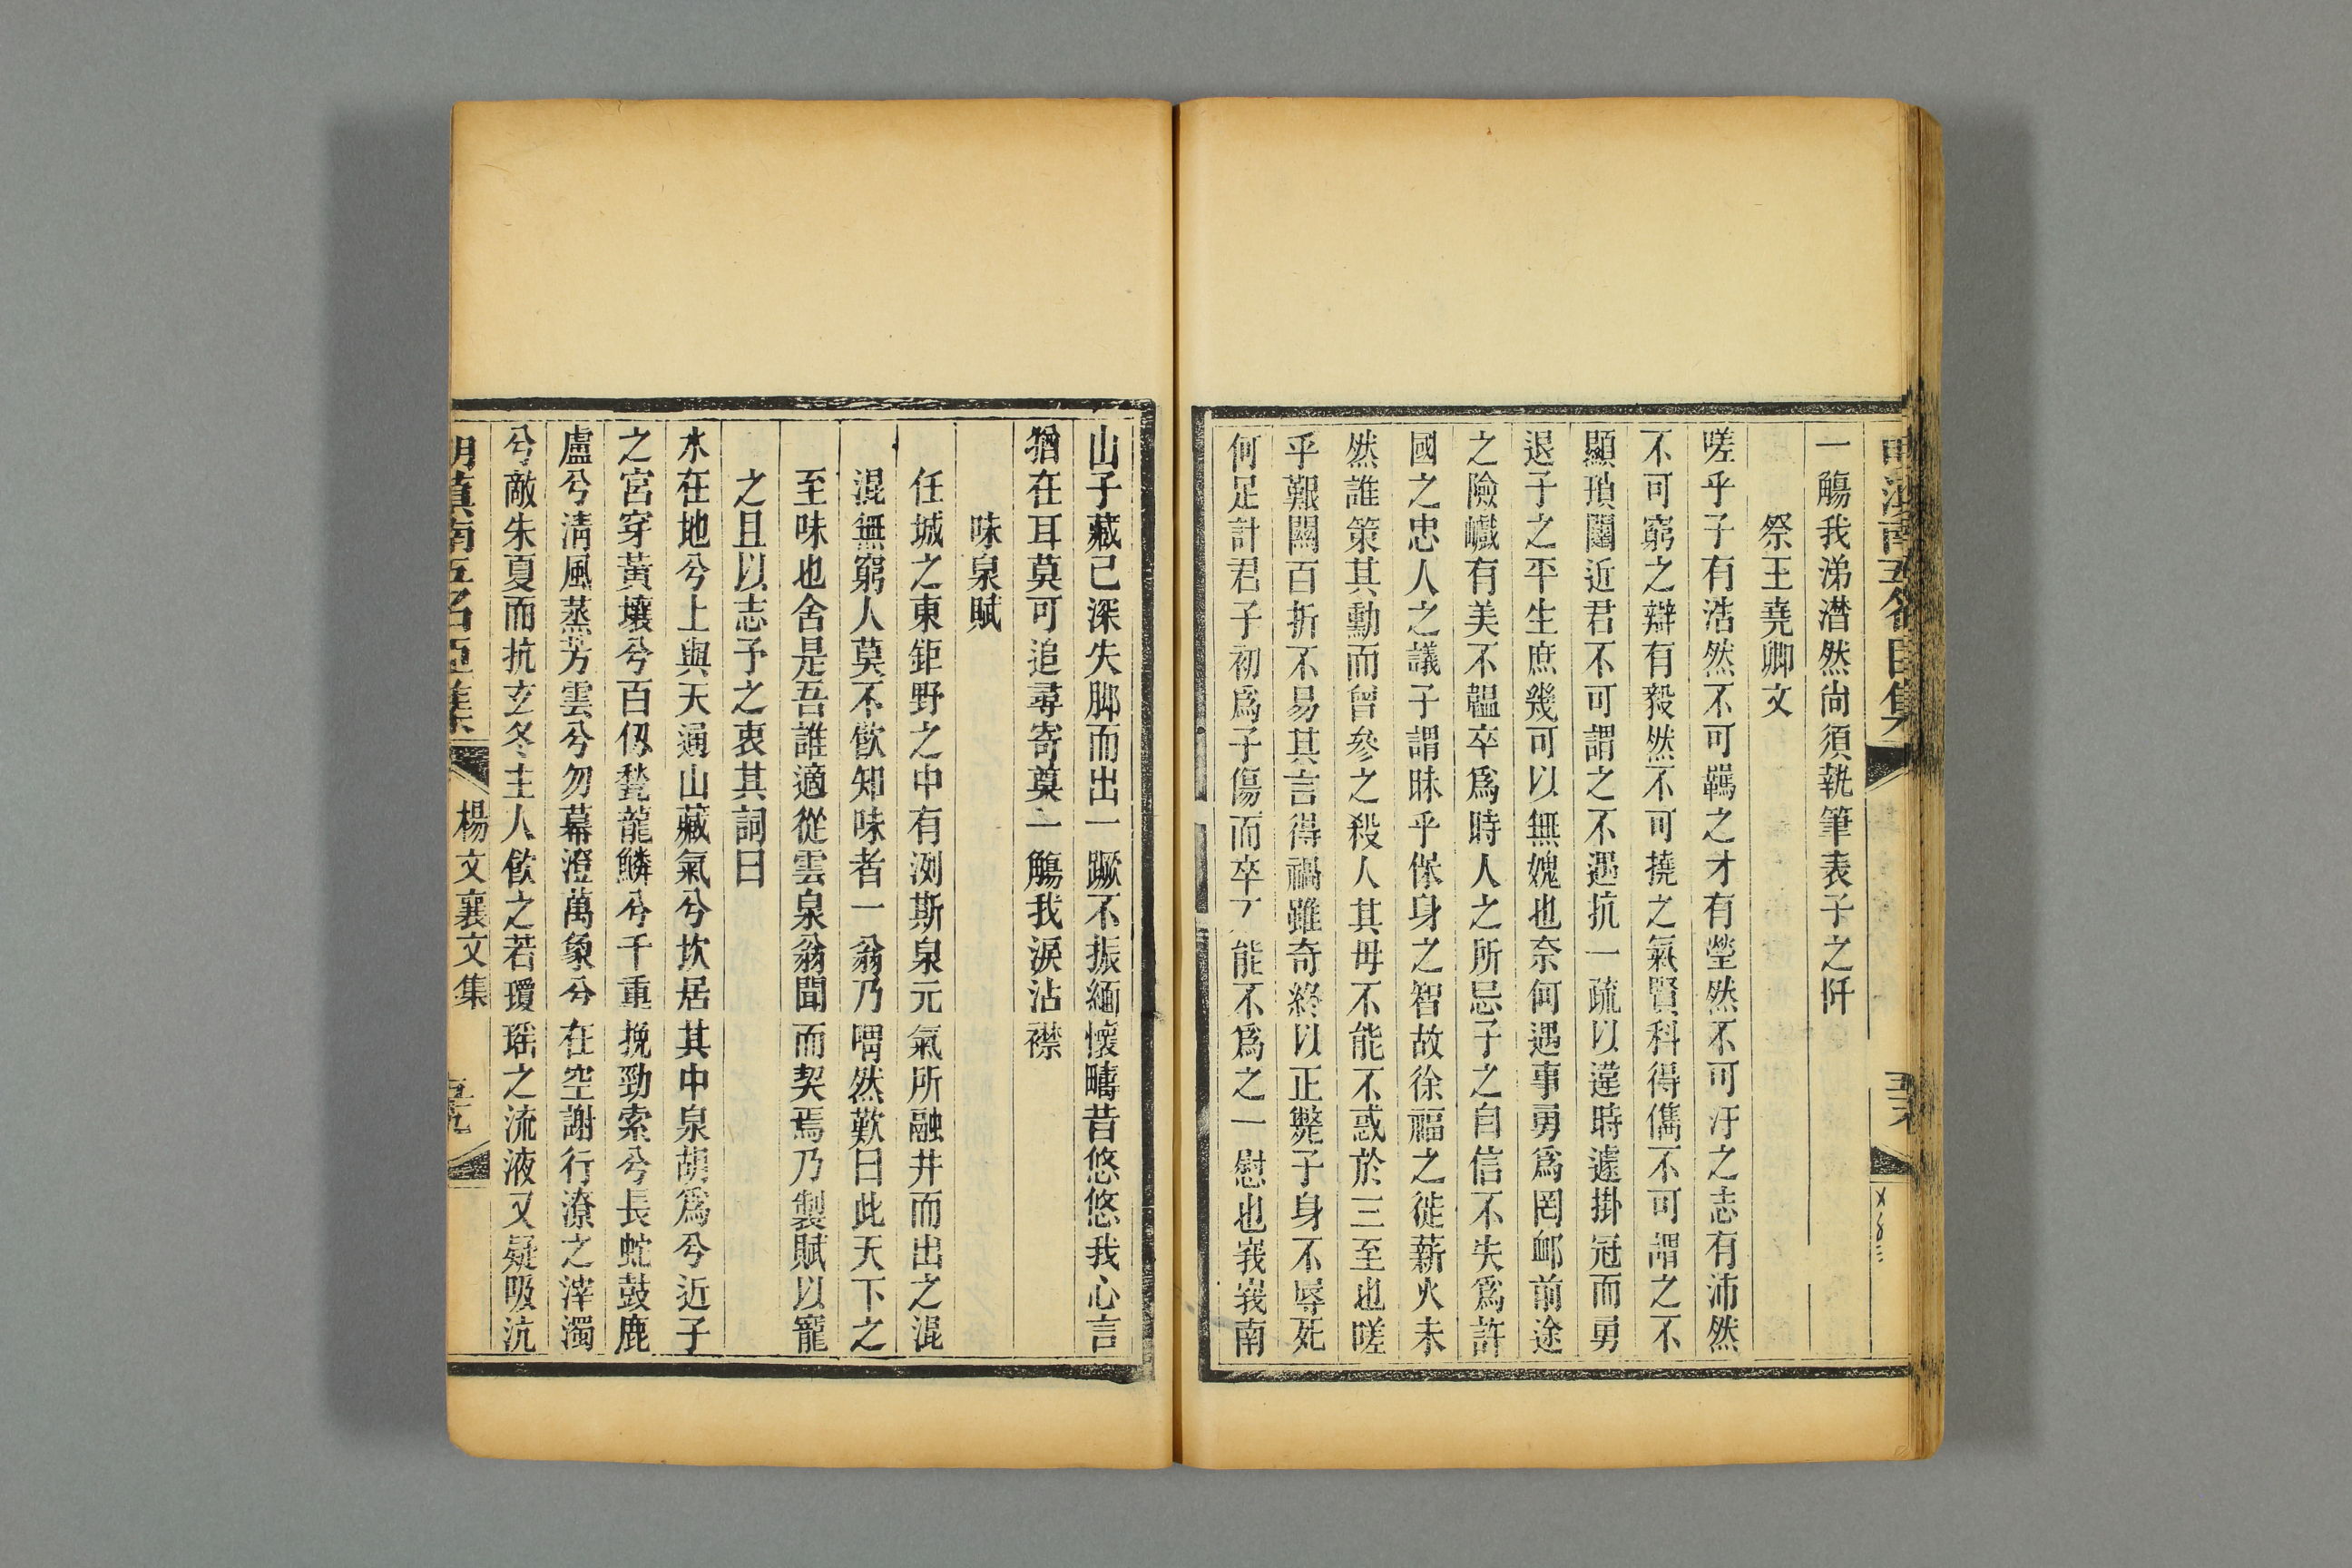 一觴我涕潸然尙須執筆表子之阡
祭王堯卿文
嗟乎子有浩然不可羈之才有瑩然不可汙之志有沛然
不可窮之辯有毅然不可撓之氣賢科得儁不可謂之不
顯瑣闥近君不可謂之不遇抗一疏以違時遽掛冠而勇
退子之平生庶幾可以無媿也奈何遇事勇爲罔䘏前途
之險巇有美不韞卒爲時人之所忌子之自信不失爲許
國之忠人之議子謂昧乎保身之智故徐福之徙薪火未
然誰策其勳而曾參之殺人其母不能不惑於三至也嗟
乎艱關百折不易其言得禍雖奇終以正斃子身不辱死
何足計君子初爲子傷而卒 能不爲之一慰也峩峩南
山子藏已深失脚而出一蹶不振緬懷疇昔悠悠我心言
猶在耳莫可追尋寄奠一觴我淚沾襟
味泉賦
任城之東鉅野之中有洌斯泉元氣所融井而出之混
混無窮人莫不飮知味者一翁乃喟然歎曰此天下之
至味也舍是吾誰適從雲泉翁聞而契焉乃製賦以寵
之且以志予之衷其詞曰
水在地兮上與天通山藏氣兮坎居其中泉胡爲兮近子
之宮穿黃壤兮百仭甃龍鱗兮千重挽勁索兮長虵鼓鹿
盧兮淸風蒸芳雲兮勿幕澄萬象兮在空謝行潦之滓濁
兮敵朱夏而抗玄冬主人飮之若瓊瑶之流液又疑吸沆
明滇南五名臣集
楊文襄文集
五十九